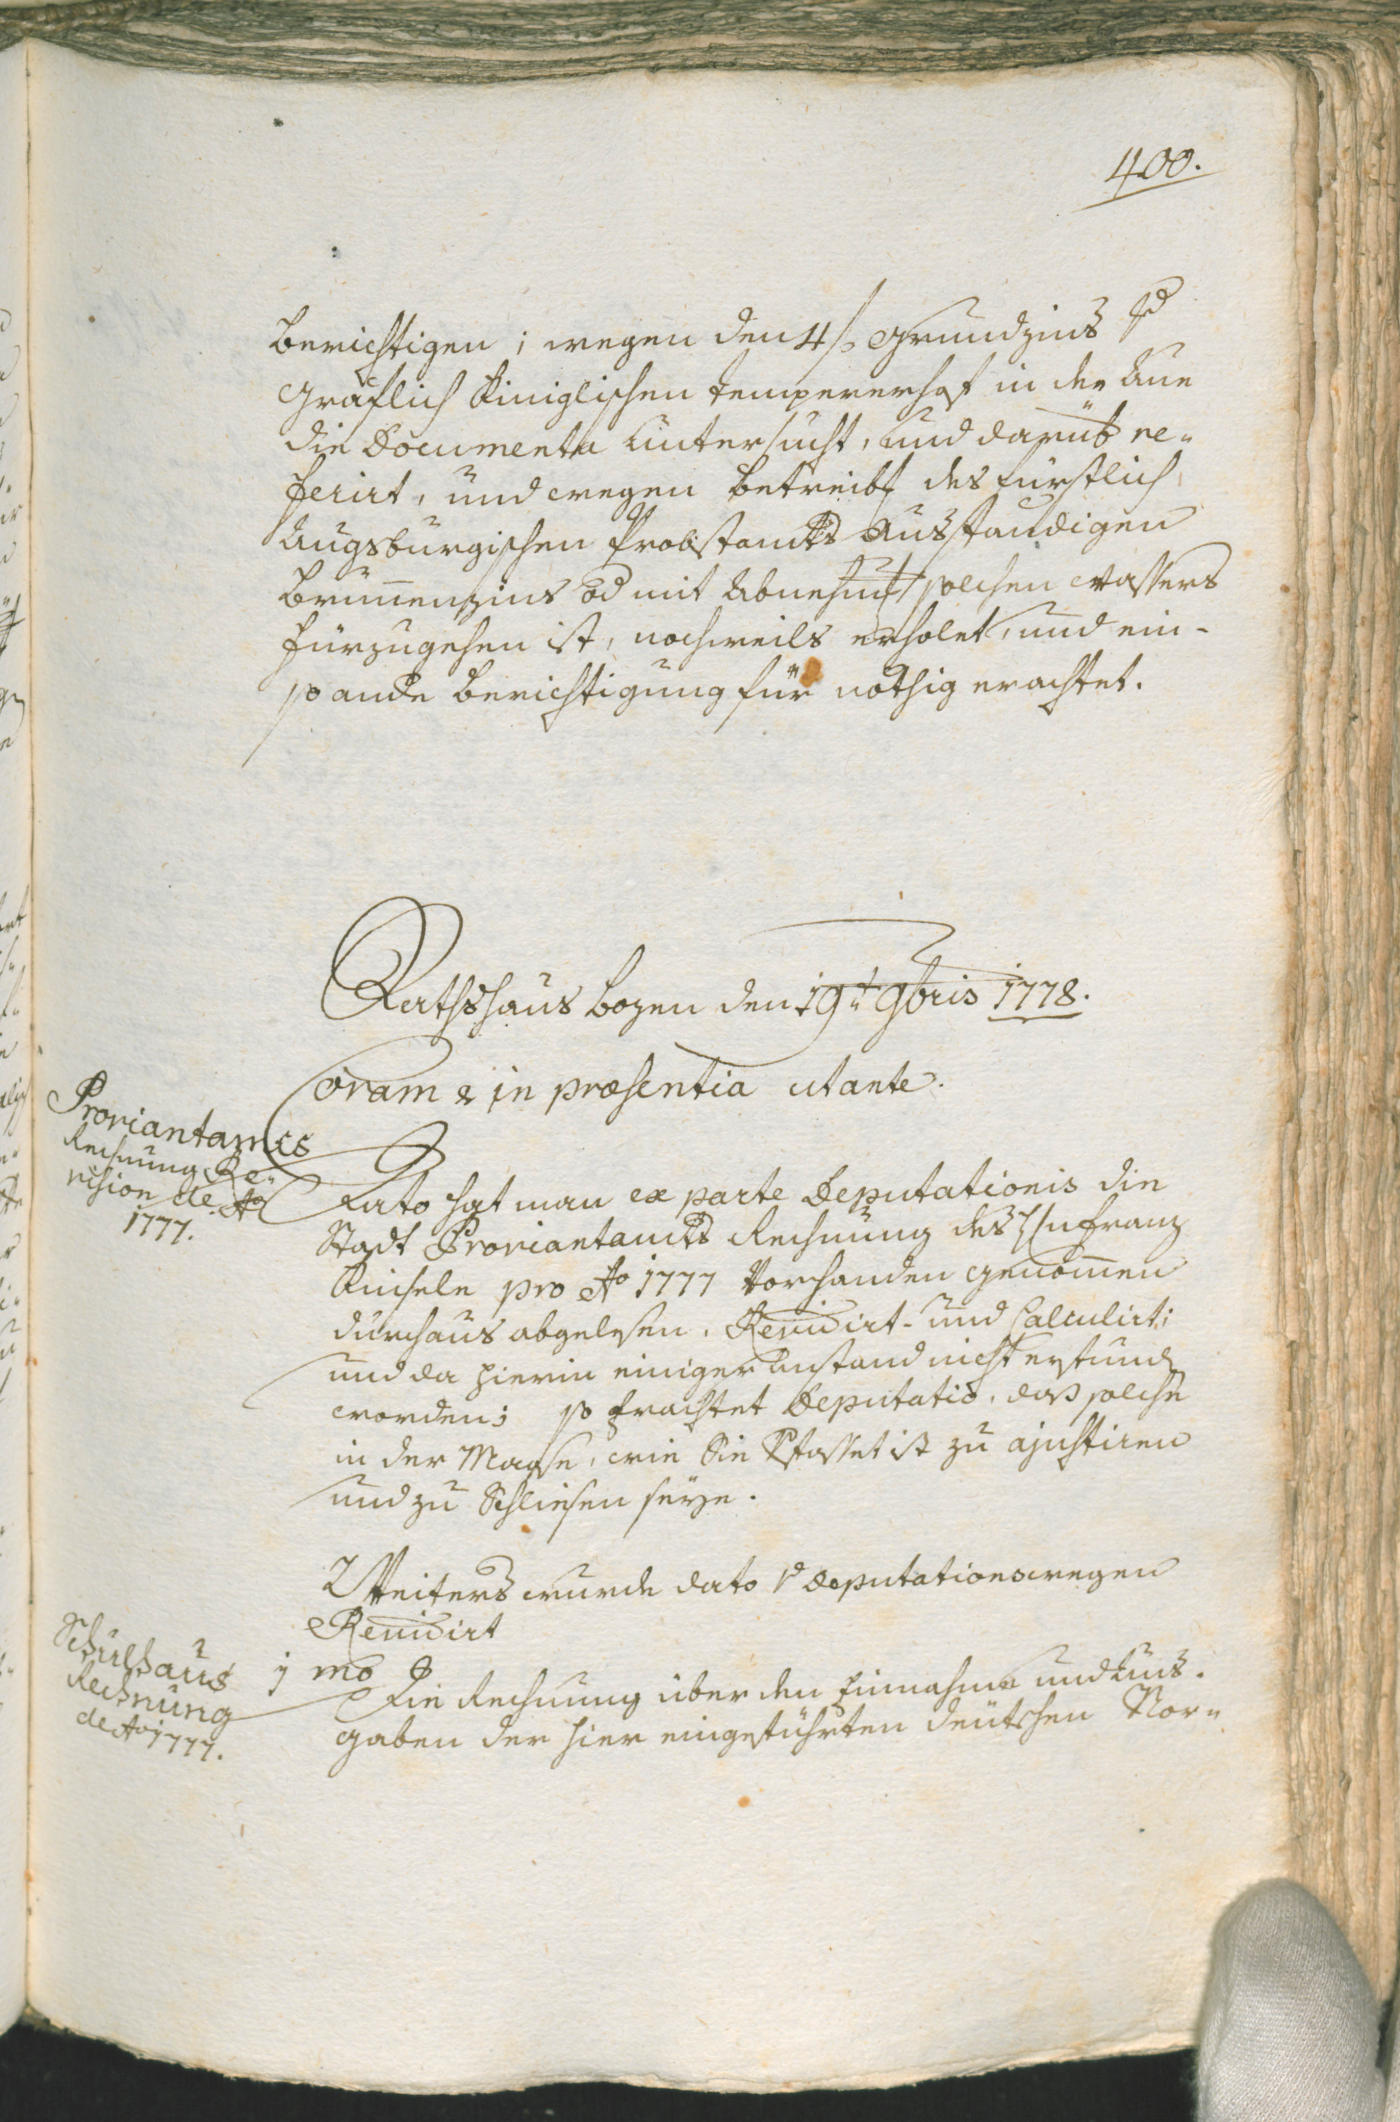 400.
berichtigen; wegen den 4 f. Grundzins
Gräflich Küniglischen Tempererhof in der Aue
die Documenta untersucht, und darüb re-
ferirt, und wegen betreibt des fürstlich
Augsburgischen Probstamts ausständigen
Bruñenzins od mit Abnehm solchen Wassers
fürzugehen ist, nochweils erholet, und ein-
so ande berichtigung für nöthig erachtet.
Rathshaus Bozen den 19t 9bris 1778.
Coram & in præsentia ut ante.
Proviantamts
Rechnung Re-
vision de Ao
1777.
Dato hat man ex parte Deputationis die
Stadt Proviantamts Rechnung des Hn Franz
pro Ao 1777 Vorhanden genom̄en
durchaus abgelesen, Revidirt- und Calculirt;
und da hierin einiger anstand nicht erfund
worden; so Erachtet Deputatio, daß solche
in der Maase, wie Sie Vfasset ist zu ajustiren
und zu Schliesen seye.
Weiters wurde dato Deputationswegen
Revidirt
Schulhaus
Rechnung
de Ao 1777.
1 mo Die Rechnung über den Einnahm und Aus-
gaben der hier eingeführten deutschen Nor-